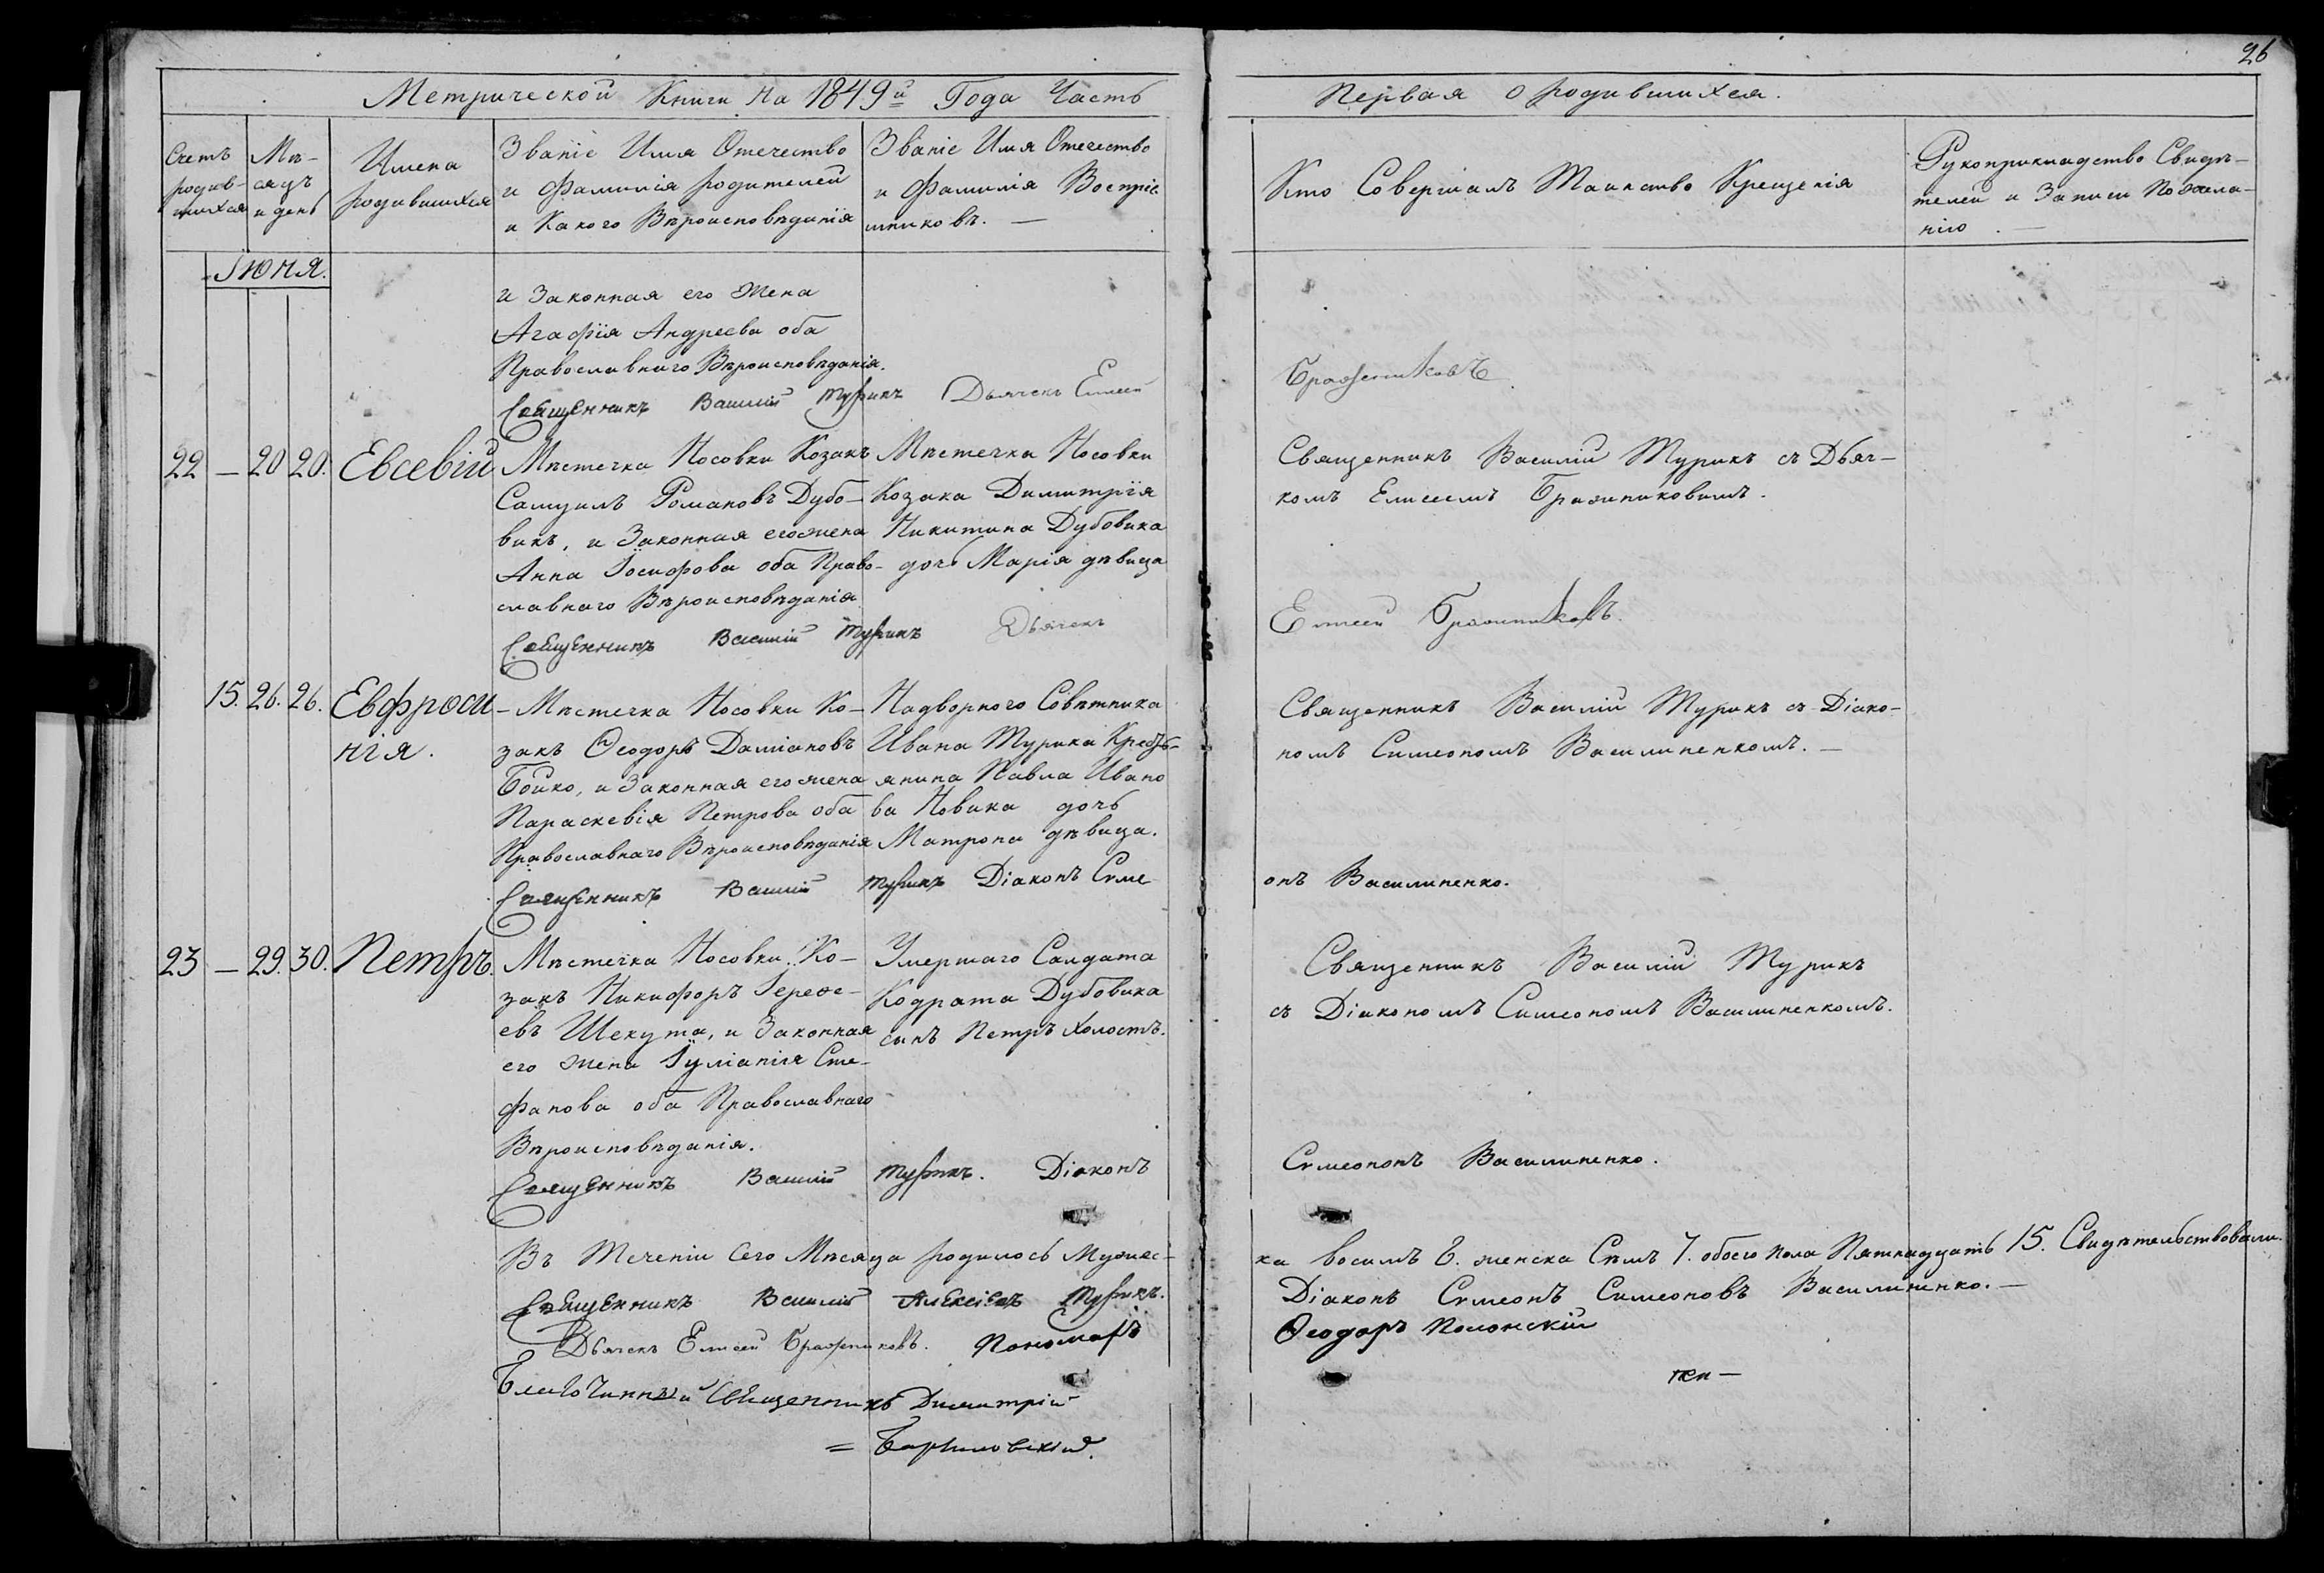 26
Метрической Книги на 1849й Года Часть
Первая о родившихся.
Счетъ родив-шихся
Мѣ-сяцъ и день
Имена родившихся
Званіе Имя Отечество и Фамилія родителей и Какого Вѣроисповѣданія
Званіе Имя Отечество и Фамилія Воспріе мниковъ. —
Кто Совершалъ Таинство Крещенія
Рукоприкладство Свидѣ-телей и Записи По жела-нію. —
Іюня.
и Законная его Жена
Агафія Андреева оба
Православнаго Вѣроисповѣданія.
Священникъ Василій Турикъ Дьячекъ Елисей
Бражниковъ
22 — 20 20. Евсевій
Мѣстечка Носовки Козакъ
Самуилъ Романовъ Дубо-
викъ, и Законная его жена
Анна Іосифова оба Право-
славнаго Вѣроисповѣданія
Мѣстечка Носовки
Козака Димитрія
Никитина Дубовика
дочь Марія дѣвица
Священникъ Василій Турикъ съ Дьяч-
комъ Елисеемъ Бражниковимъ.
Священникъ Василій Турикъ Дьячекъ
Елисей Бражниковъ.
15. 26. 26. Евфроси
нія.
— Мѣстечка Носовки Ко-
закъ Ѳеодоръ Даміановъ
Бойко, и Законная его жена
Параскевія Петрова оба
Православнаго Вѣроисповѣданія
Надворного Совѣтника
Ивана Турика Кресть-
янина Павла Ивано
ва Новика дочь
Матрона дѣвица.
Священникъ Василій Турикъ съ Діако-
номъ Симеономъ Василиненкомъ. —
Священникъ Василій Турикъ Діаконъ Сѵме
онъ Василиненко.
23 — 29. 30. Петръ.
Мѣстечка Носовки Ко-
закъ Никифоръ
евъ Шекута, и Законная
его жена Іуліанія Сте-
фанова оба Православнаго
Вѣроисповѣданія.
Умершаго Салдата
Кодрата Дубовика
сынъ Петръ Холостъ.
Священникъ Василій Турикъ
съ Діакономъ Симеономъ Василиненкомъ.
Священникъ Василій Турикъ. Діаконъ
Сѵмеонъ Василиненко.
Въ Теченіи Сего Мѣсяца родилось Мужес-
ка восимъ 8. женска Сѣмъ 7. обоего пола Пятнадцать 15. Свидѣтельствовали.
Священникъ Василій Алексіевъ Турикъ.
Діаконъ Сѵмеонъ Симеоновъ Василиненко. —
Дьячекъ Елисей Бражниковъ. Пономарь
Ѳеодоръ Полонскій
Благочинный Священникъ Димитрій